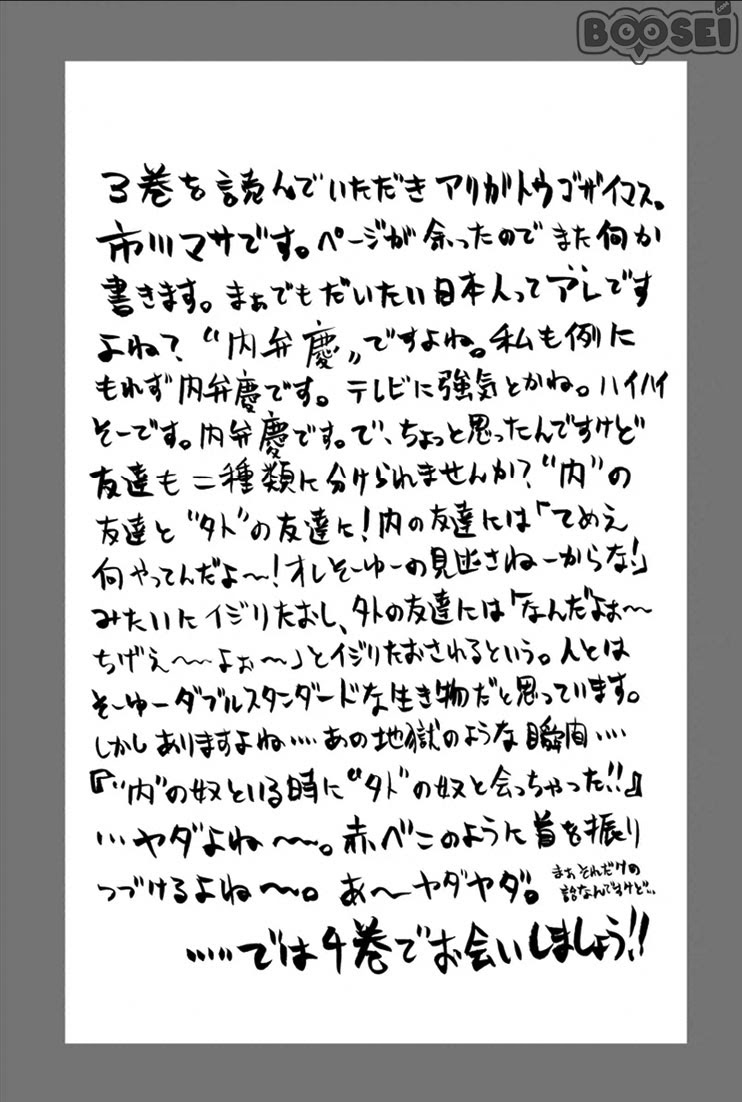 BOOSEI
.com
3巻を読んでいただきアリガトウゴザイマス。
市川マサです。ページが余ったのでまた何か
書きます。まぁでもだいたい日本人ってアレです
よね?“内弁慶”ですよね。私も例に
もれず内弁慶です。テレビに強気とかね。ハイハイ
そーです。内弁慶です。で、ちょっと思ったんですけど
友達も二種類に分けられませんか?“内”の
友達と“外”の友達に!内の友達には「てめえ
何やってんだよ〜!オレそーゆーの見逃さねーからな!」
みたいにイジりたおし、外の友達には「なんだよぉ〜
ちげぇ〜〜よぉ〜」とイジりたおされるという。人とは
そーゆーダブルスタンダードな生き物だと思っています。
しかしありますよね‥‥あの地獄のような瞬間‥‥
『“内”の奴といる時に“外”の奴と会っちゃった!!』
…ヤダよね〜〜。赤べこのように首を振り
つづけるよね〜〜。あ〜ヤダヤダ。
まぁそれだけの
話なんですけど…
……では4巻でお会いしましょう!!